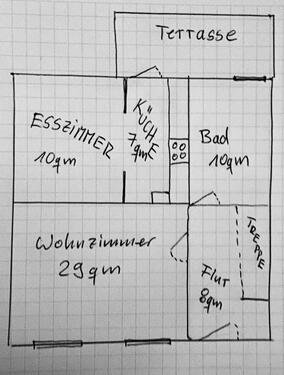 Terrasse
ESSZIMMER
10qm
KÜCHE
7qm
Bad
10qm
Wohnzimmer
29qm
Flur
8qm
TREPPE